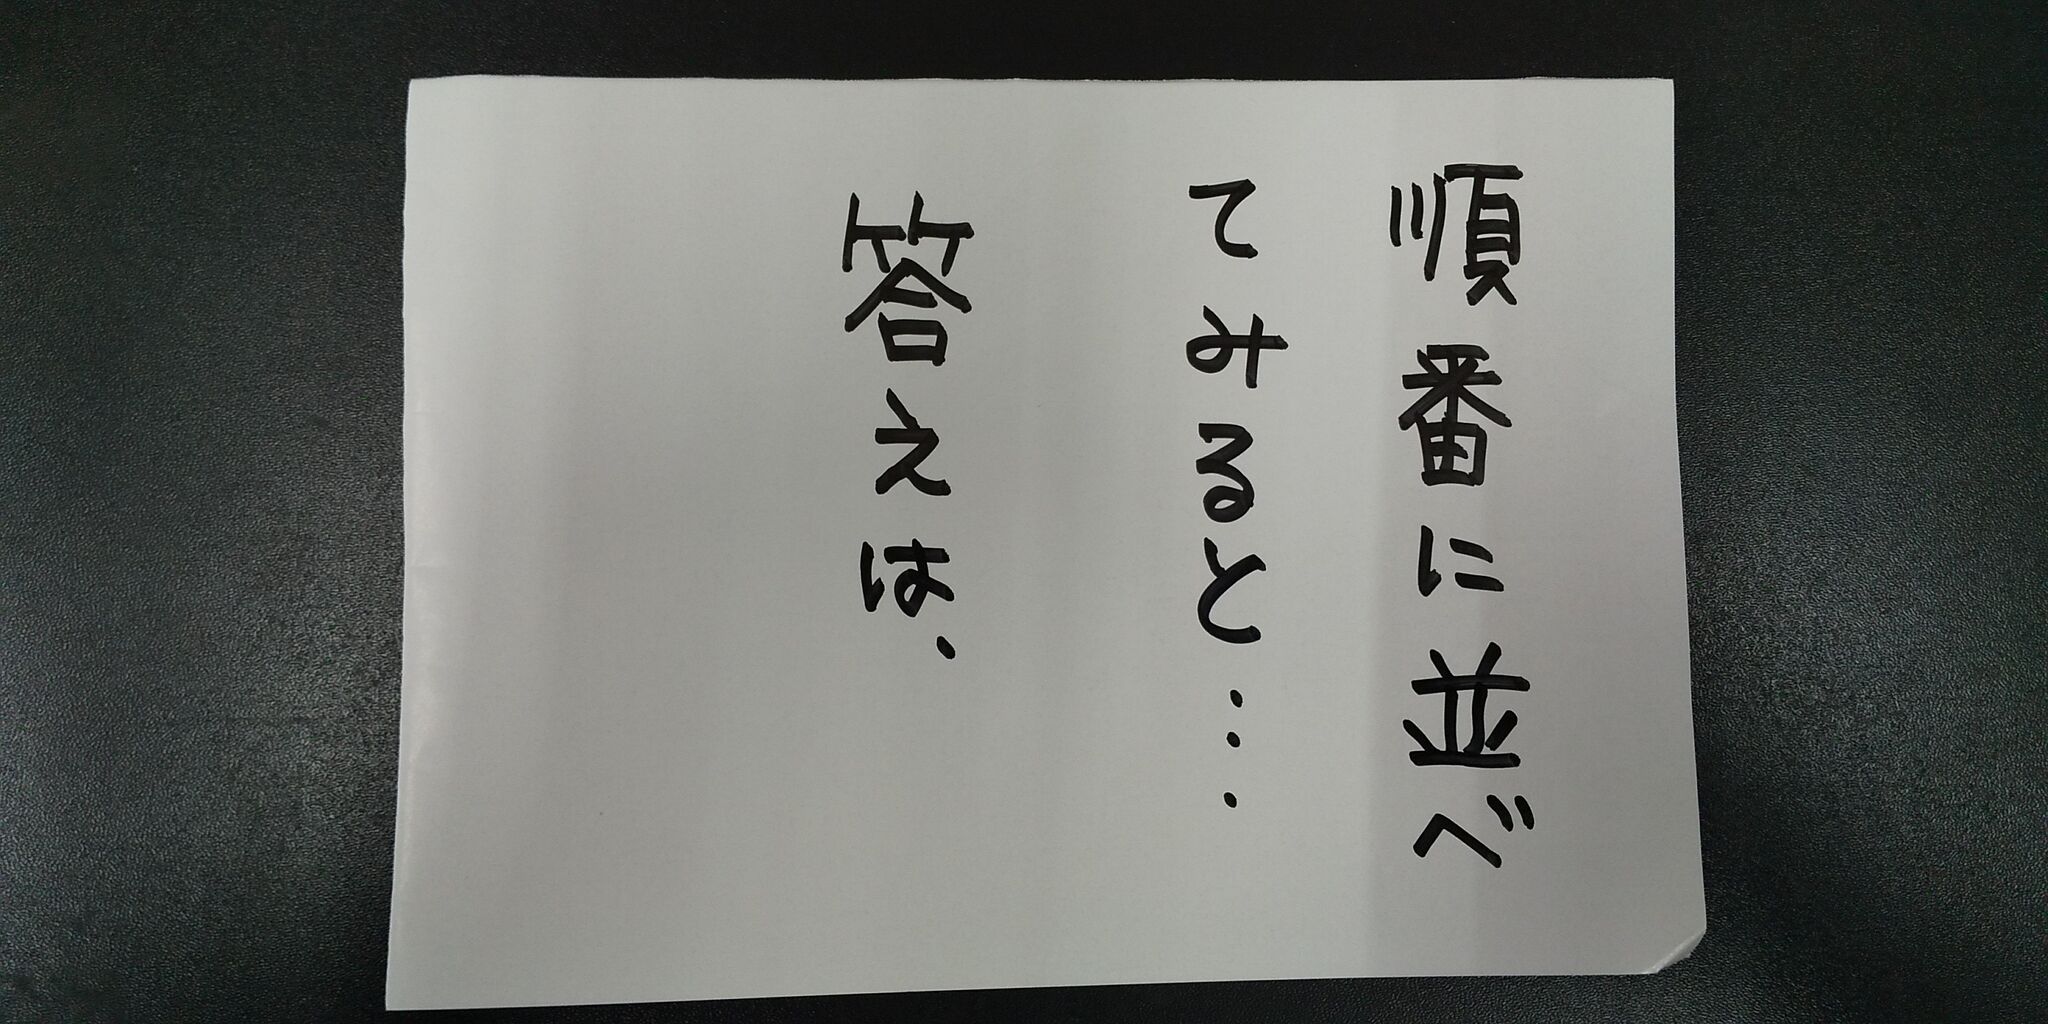 順番に並べ
てみると…
答えは、